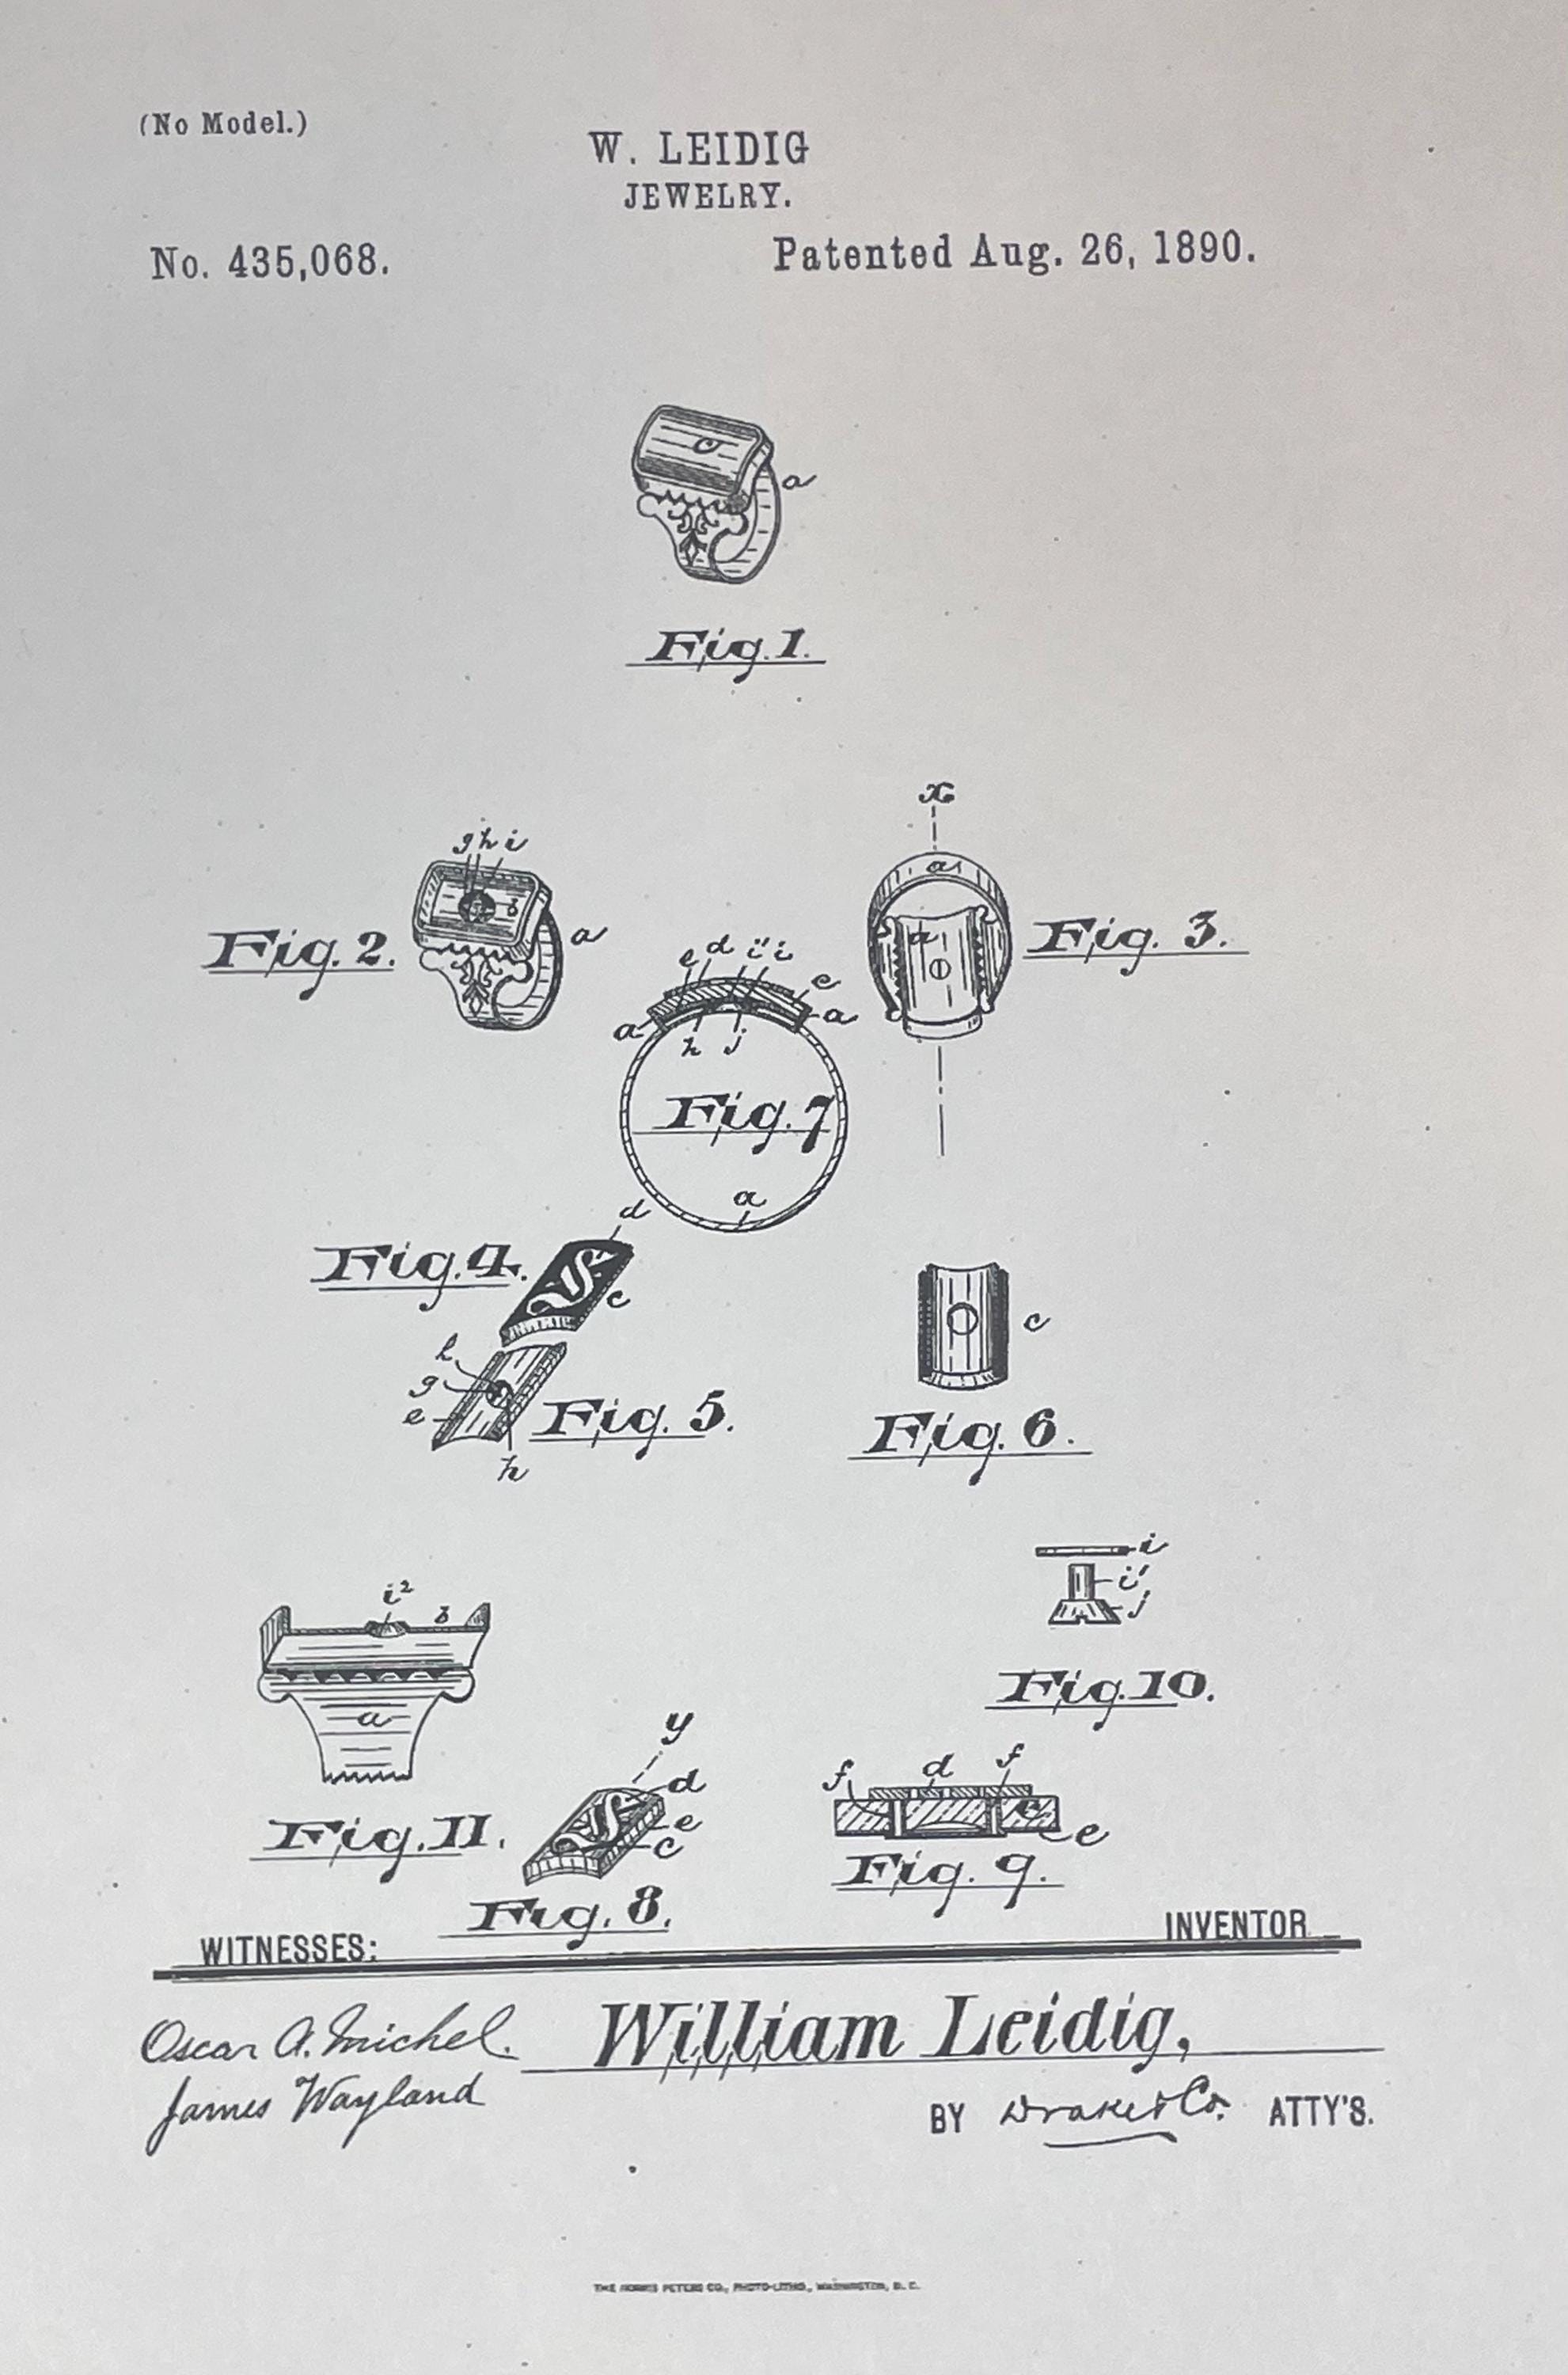 (No Model.)
W. LEIDIG
JEWELRY.
No. 435,068.
Patented Aug. 26, 1890.
a
Fig. 1.
x
g h i
b
a
Fig. 2.
a
a
Fig. 3.
e d i' i
e
a
a
h j
Fig. 7
a
d
Fig. 4.
c
h
g
e
h
Fig. 5.
c
Fig. 6.
i
i'
j
Fig. 10.
i² b
a
Fig. 11.
y
d
e
c
Fig. 8.
f d f
c
e
Fig. 9.
WITNESSES:
INVENTOR
Oscar A. Michel.
James Wayland
William Leidig,
BY Drake & Co. ATTY'S.
THE NORRIS PETERS CO., PHOTO-LITHO., WASHINGTON, D. C.